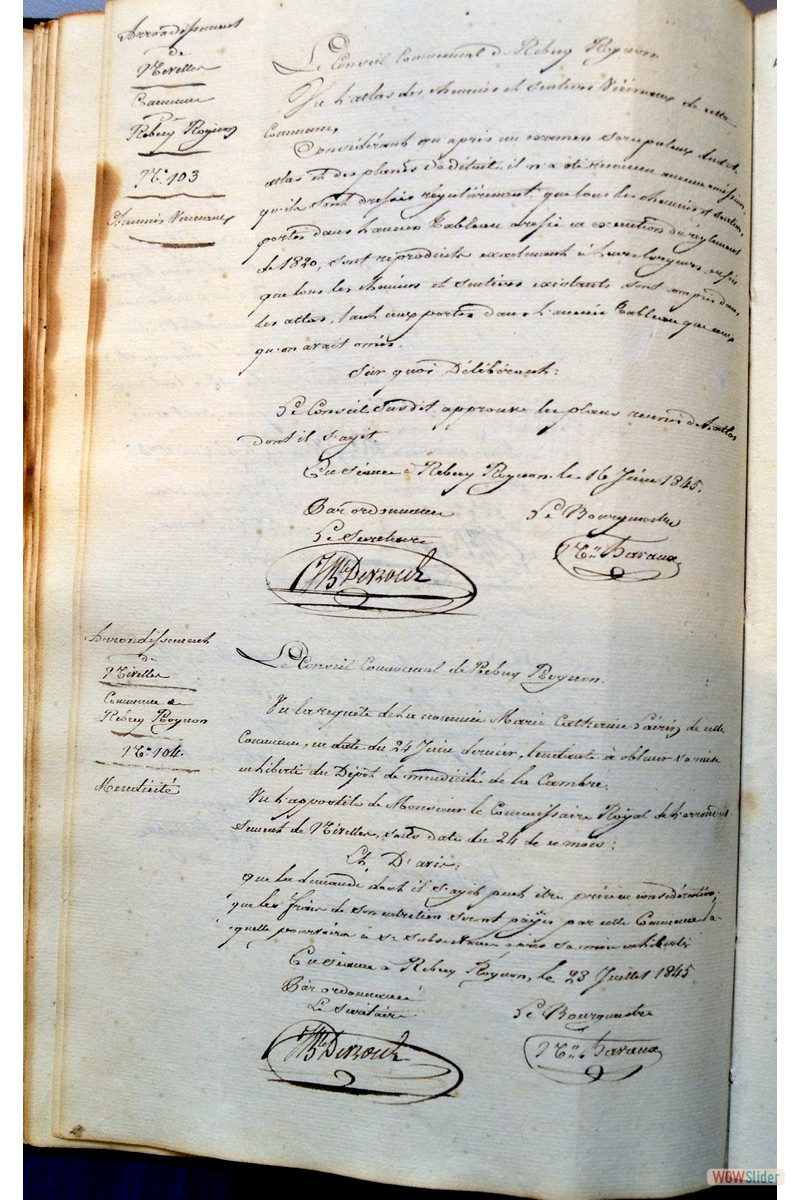 Arrondissement
de
Nivelles
Commune
de
Rebecq Rognon
N° 103
Chemins Vicinaux
Le Conseil Communal de Rebecq Rognon
Vu l'atlas des chemins et sentiers Vicinaux de cette
Commune,
Considérant qu'après un examen scrupuleux dudit
atlas et des plans de détail, il n'a été reconnu aucune omission,
qu'ils sont dressés régulièrement, que tous les chemins et sentiers
portés dans l'ancien tableau dressé en exécution du règlement
de 1820, sont reproduits exactement à leurs longueurs, enfin
que tous les chemins et sentiers existants sont compris dans
les atlas, tant ceux portés dans l'ancien tableau que ceux
qu'on avait omis.
Sur quoi Délibérant:
Le Conseil Susdit approuve les plans réunis de l'atlas
dont il s'agit
En séance à Rebecq Rognon, le 16 Juin 1845.
Par ordonnance
Le Bourgmestre
Le Secrétaire
Arrondissement
de
Nivelles
Commune de
Rebecq Rognon
N° 104.
Mendicité
Le Conseil Communal de Rebecq Rognon.
Vu la requête de la nommée Marie Catherine de cette
Commune, en date du 24 Juin dernier, tendante à obtenir sa mise
en liberté du Dépôt de mendicité de la Cambre.
Vu l'apostille de Monsieur le Commissaire Royal de l'arrondis
sement de Nivelles, sous date du 24 de ce mois:
Est D'avis:
que la demande dont il s'agit peut être prise en considération,
que les frais de son entretien seront payés par cette Commune la-
quelle pourvoira à sa subsistance après sa mise en liberté
En séance à Rebecq Rognon, le 23 Juillet 1845
Par ordonnance
Le Secrétaire
Le Bourgmestre
WOWSlider